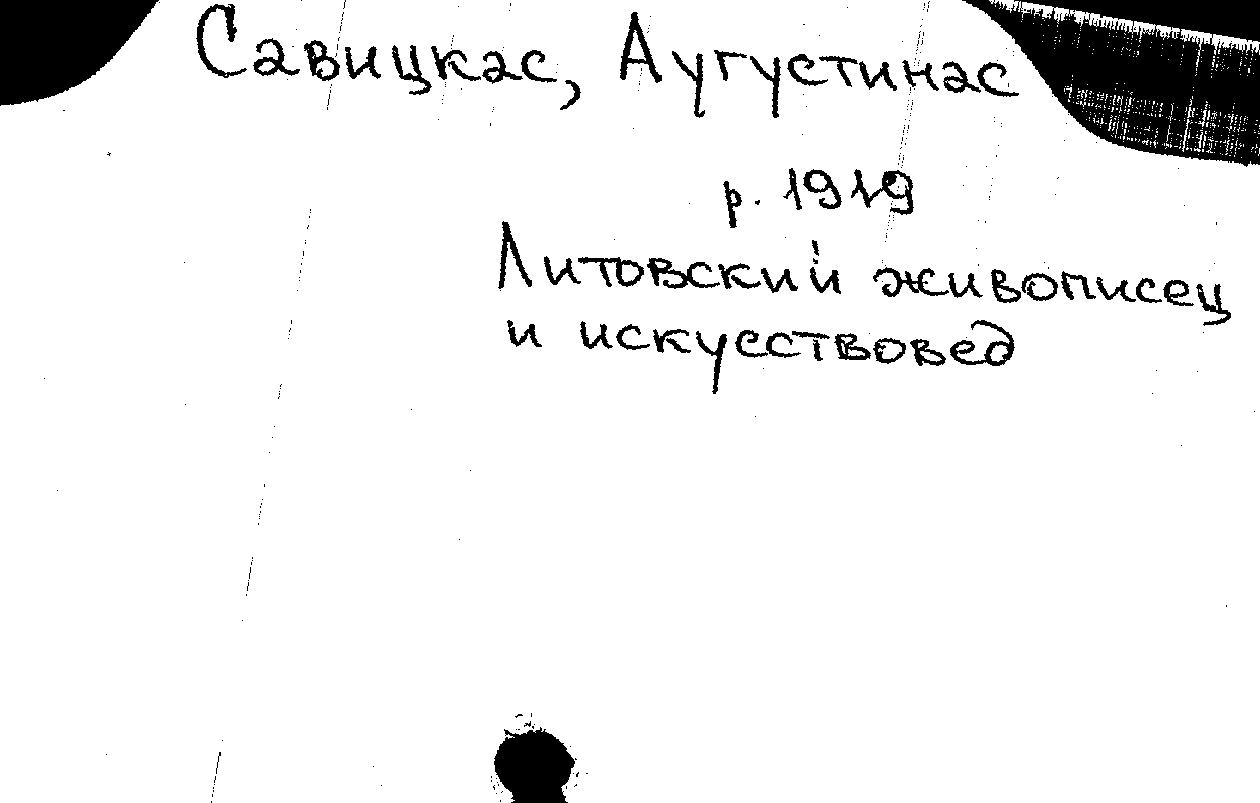 Савицкас, Аугустинас
р. 1919
Литовский живописец
и искусствовед